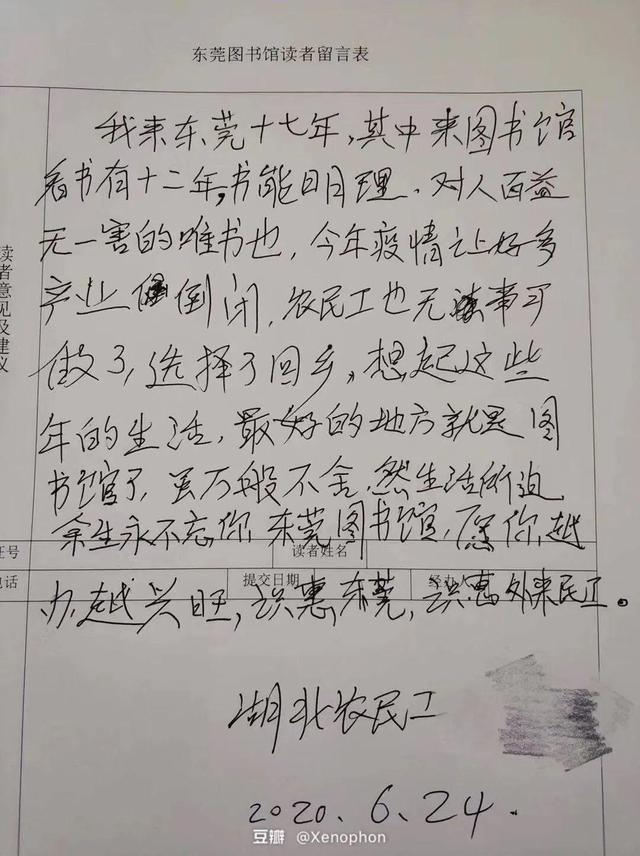 东莞图书馆读者留言表
我来东莞十七年,其中来图书馆
看书有十二年,书能明理、对人百益
无一害的唯书也,今年疫情让好多
产业倒闭,农民工也无事可
做了,选择了回乡,想起这些
年的生活,最好的地方就是图
书馆了,虽万般不舍,然生活所迫
余生永不忘你东莞图书馆,愿你越
办越兴旺,识惠东莞,识惠外来民工。
读者意见及建议
证号
读者姓名
电话
提交日期
经办人
湖北农民工
2020.6.24.
豆瓣 @Xenophon